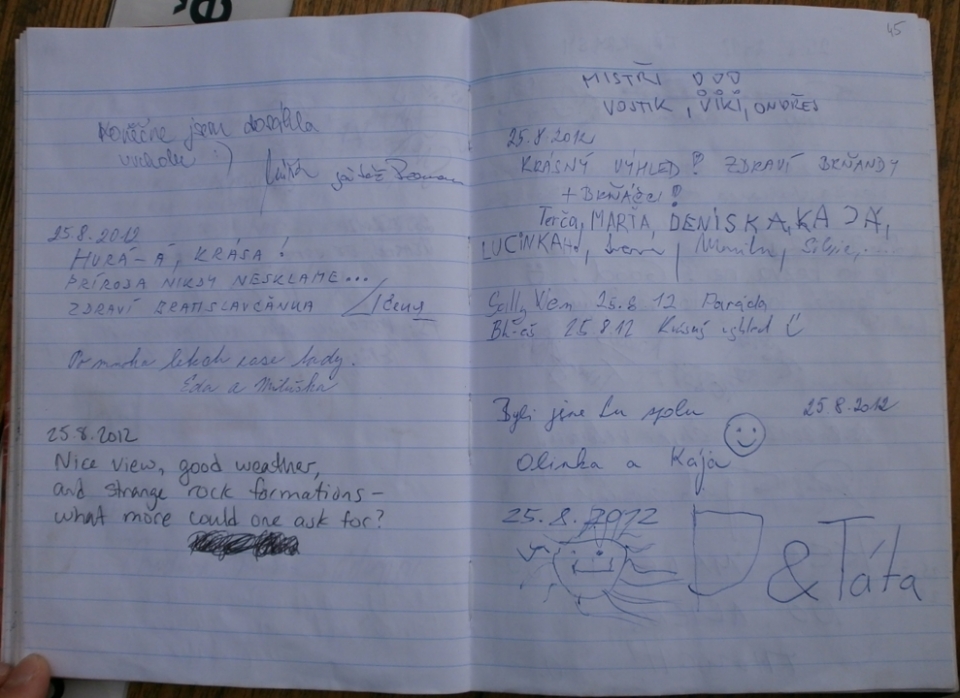 Konečně jsem dosáhla
vrcholu :)
25.8.2012
HURÁ-Á, KRÁSA!
PŘÍRODA NIKDY NESKLAME...
ZDRAVÍ BRATISLAVČANKA
Po mnoha letech zase tady.
Eda a Miluška
25.8.2012
Nice view, good weather,
and strange rock formations -
what more could one ask for?
45
MISTŘI
VOSTIK, VÍKÍ, ONDŘES
25.8.2012
KRÁSNÝ VÝHLED! ZDRAVÍ BRŇANDY
+ BRŇÁCI!
Terča, MARŤA, DENISKA, KAJA,
LUCINKA
25.8 12 Paráda
25 8 12 Krásný
Byli jsme tu spolu 25.8.2012
Olinka a Kája
25.8.2012
D & Táta